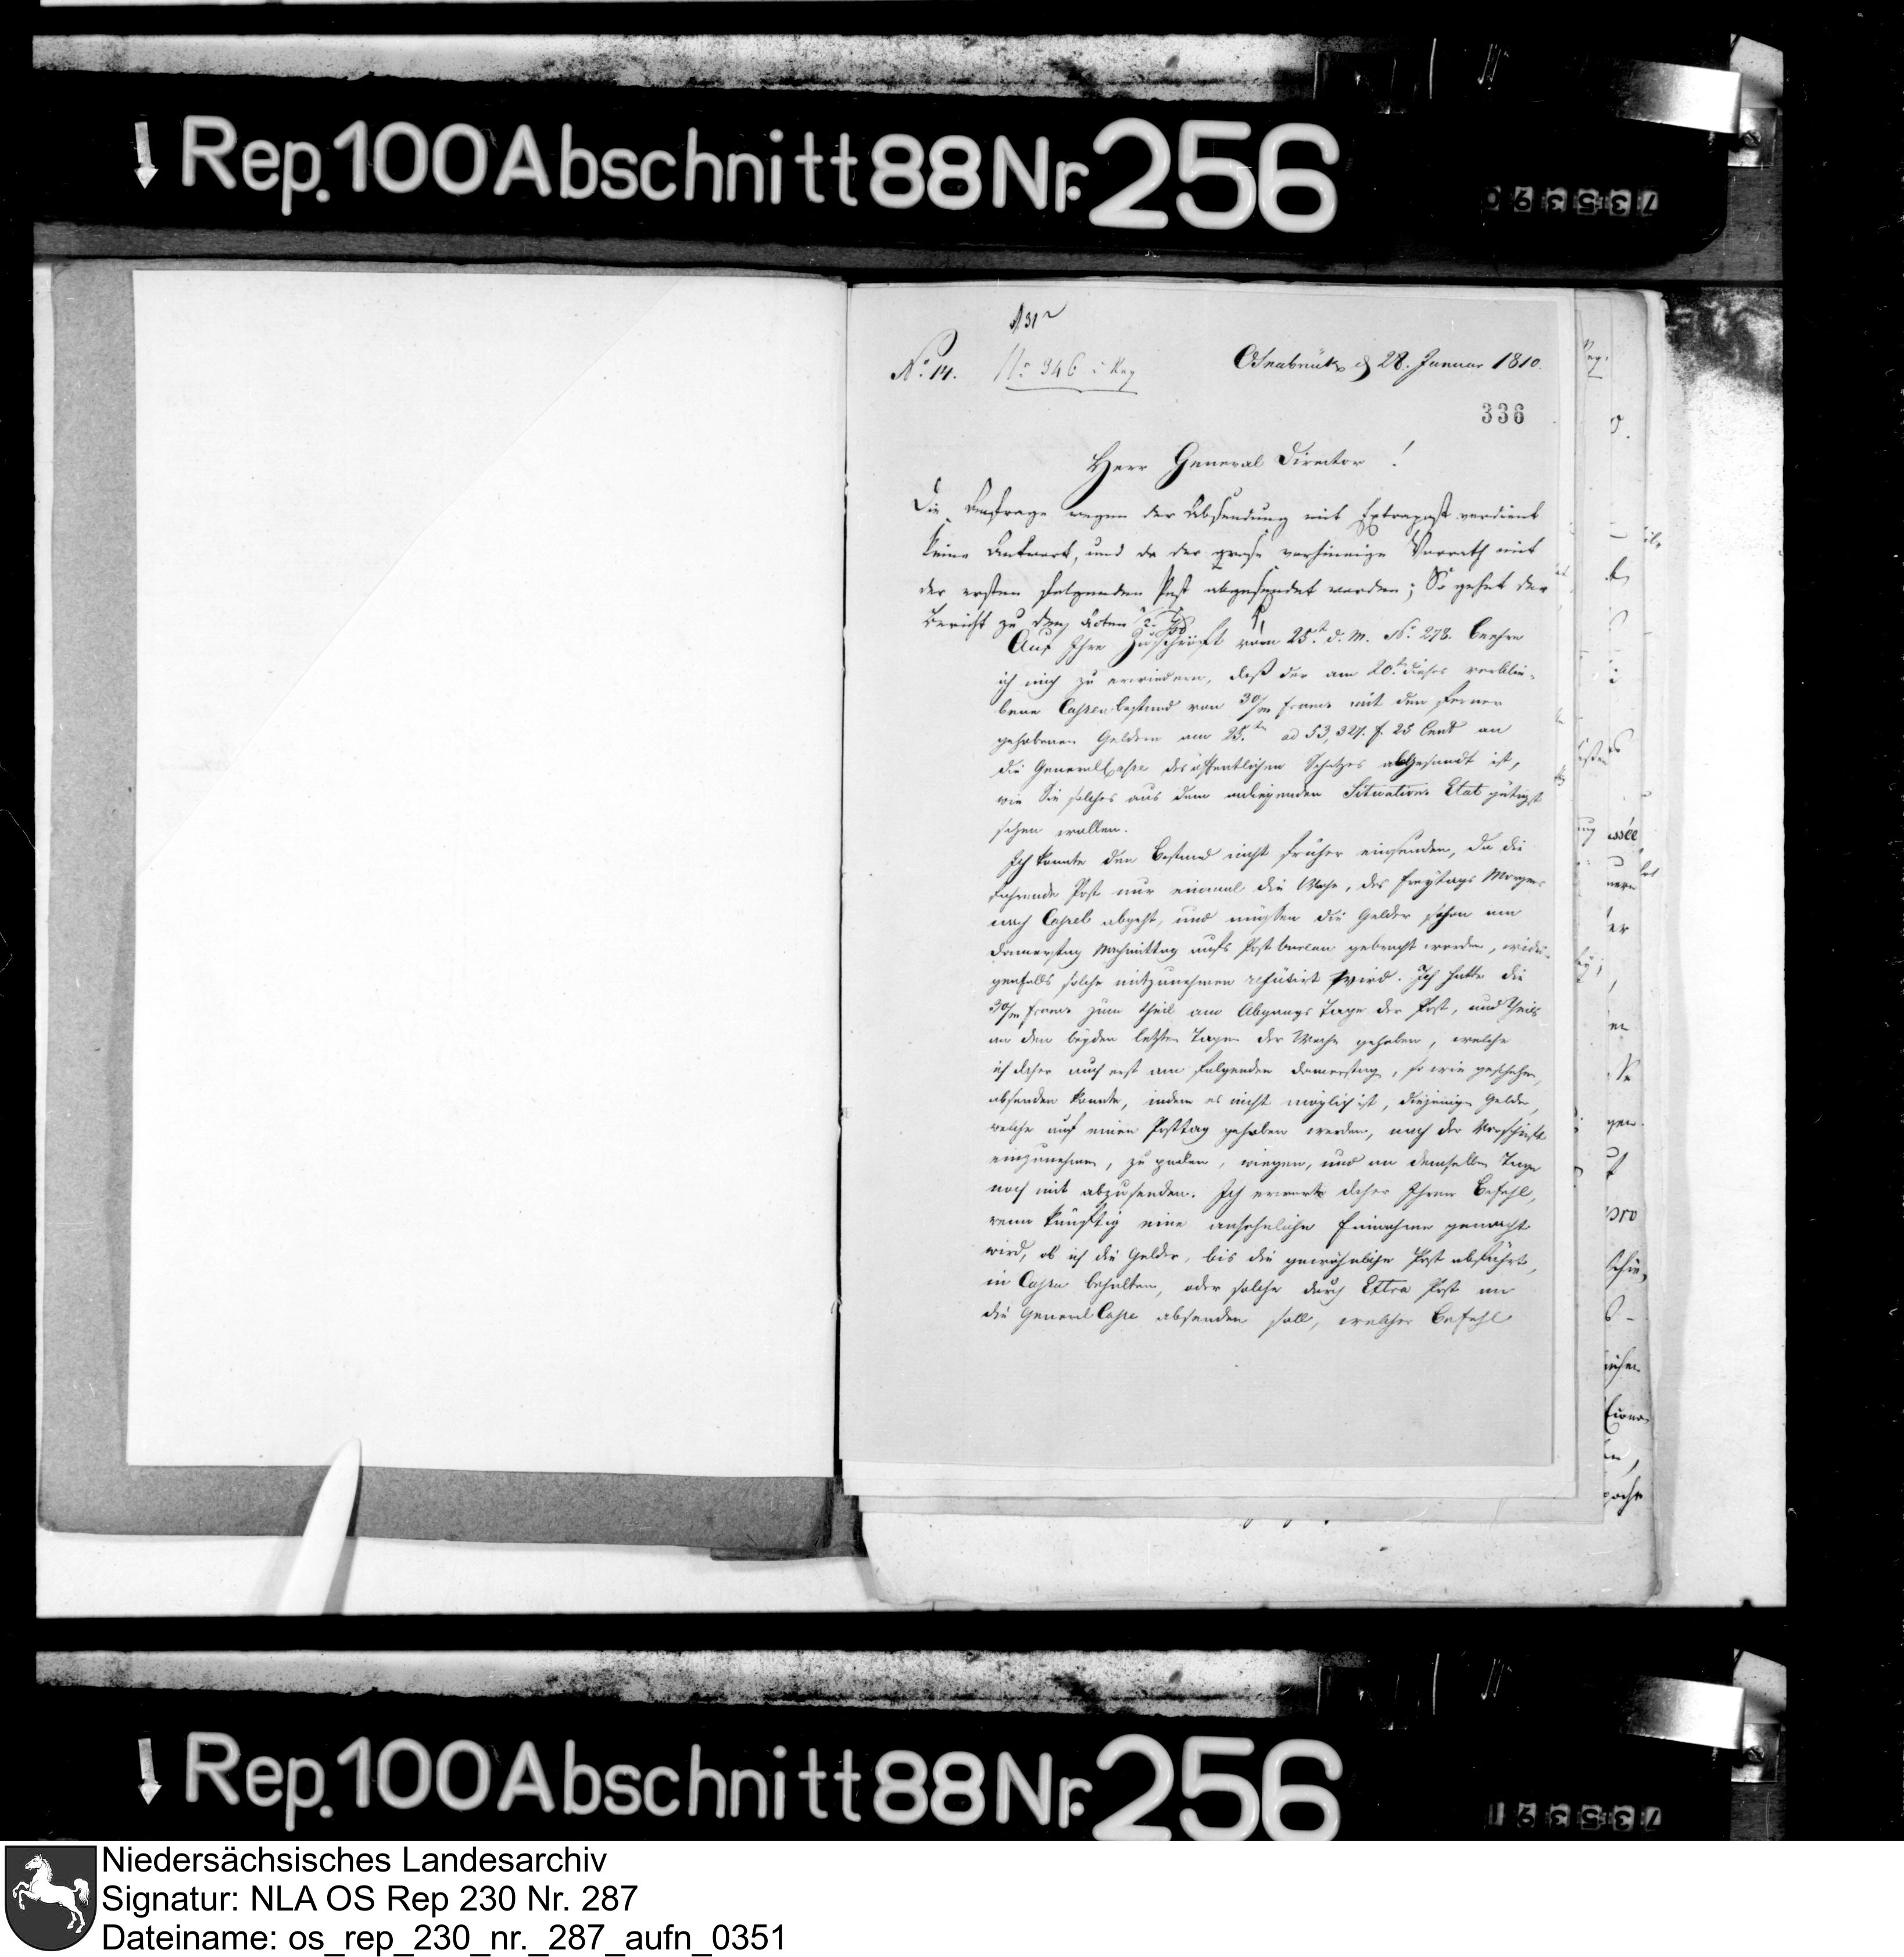 Rep. 100 Abschnitt 88 Nr. 256
735390
No. 14. No 346
Osnabrük d 28. Januar 1810.
336
Herr General Director !
Die Anfrage wegen der Absendung mit Extrapost verdient
keine Antwort, und da der große vorhinnige Vorrath mit
der ersten folgenden Post abgesendet worden; So gehet der
Bericht zu den Acten
Auf Ihre Zuschrift vom 25t. d. M. No. 278. beehre
ich mich zu erwiedern, daß der am 20t. dieses verblie-
bene Cassenbestand von 30/m francs mit den ferner
gehobenen Geldern am 25.ten ad 53,327. f. 25 Cent an
die General Casse des öffentlichen Schatzes abgesandt ist,
wie Sie solches aus dem anliegenden Situations Etat gütigst
sehen wollen.
Ich konnte den Bestand nicht früher einsenden, da die
fahrende Post nur einmal die Woche, des Freytags Morgens
nach Cassel abgeht, und müssen die Gelder schon am
Donnerstag Nachmittag aufs Postbureau gebracht werden, widri-
genfalls solche mitzunehmen refüsirt wird. Ich hatte die
30/m francs zum theil am Abgangs Tage der Post, und theils
an den beyden letzten Tagen der Woche gehoben, welche
ich daher auch erst am folgenden Donnerstag, so wie geschehen,
absenden konnte, indem es nicht möglich ist, diejenigen Gelder,
welche auf einen Posttag gehoben werden, nach der Vorschrift
einzunehmen, zu packen, wiegen, und an demselben Tage
noch mit abzusenden. Ich erwarte daher Ihren Befehl,
wenn künftig eine ansehnliche Einnahme gemacht
wird, ob ich die Gelder, bis die gewöhnliche Post abfährt,
in Cassa behalten, oder solche durch Extra Post an
die General Casse absenden soll, welcher Befehl
Rep. 100 Abschnitt 88 Nr. 256
735391
Niedersächsisches Landesarchiv
Signatur: NLA OS Rep 230 Nr. 287
Dateiname: os_rep_230_nr._287_aufn_0351